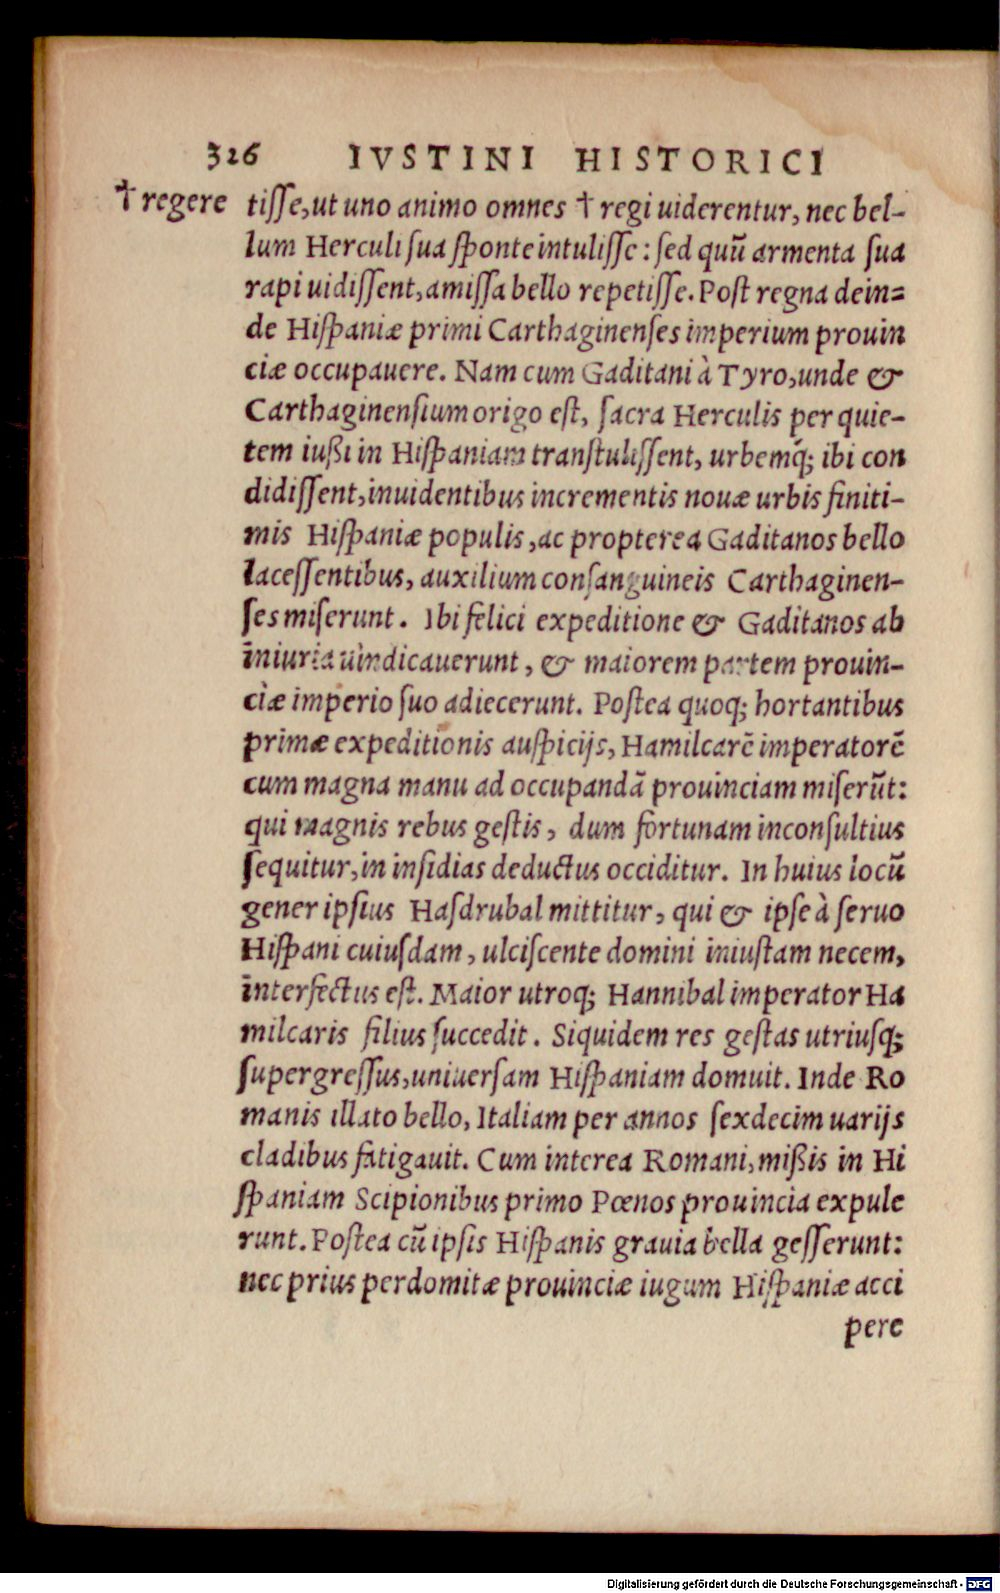 326 IVSTINI HISTORICI
† regere tisse, ut uno animo omnes † regi uiderentur, nec bel-
lum Herculi sua sponte intulisse: sed quũ armenta sua
rapi uidissent, amissa bello repetisse. Post regna dein=
de Hispaniæ primi Carthaginenses imperium prouin
ciæ occupauere. Nam cum Gaditani à Tyro, unde &
Carthaginensium origo est, sacra Herculis per quie-
tem iußi in Hispaniam transtulissent, urbemq́; ibi con
didissent, inuidentibus incrementis nouæ urbis finiti-
mis Hispaniæ populis, ac propterea Gaditanos bello
lacessentibus, auxilium consanguineis Carthaginen-
ses miserunt. Ibi felici expeditione & Gaditanos ab
iniuria uindicauerunt, & maiorem partem prouin-
ciæ imperio suo adiecerunt. Postea quoq; hortantibus
primæ expeditionis auspicijs, Hamilcarẽ imperatorẽ
cum magna manu ad occupandã prouinciam miserũt:
qui magnis rebus gestis, dum fortunam inconsultius
sequitur, in insidias deductus occiditur. In huius locũ
gener ipsius Hasdrubal mittitur, qui & ipse à seruo
Hispani cuiusdam, ulciscente domini iniustam necem,
interfectus est. Maior utroq; Hannibal imperator Ha
milcaris filius succedit. Siquidem res gestas utriusq;
supergressus, uniuersam Hispaniam domuit. Inde Ro
manis illato bello, Italiam per annos sexdecim uarijs
cladibus fatigauit. Cum interea Romani, mißis in Hi
spaniam Scipionibus primo Pœnos prouincia expule
runt. Postea cũ ipsis Hispanis grauia bella gesserunt:
nec prius perdomitæ prouinciæ iugum Hispaniæ acci
pere
Digitalisierung gefördert durch die Deutsche Forschungsgemeinschaft - DFG